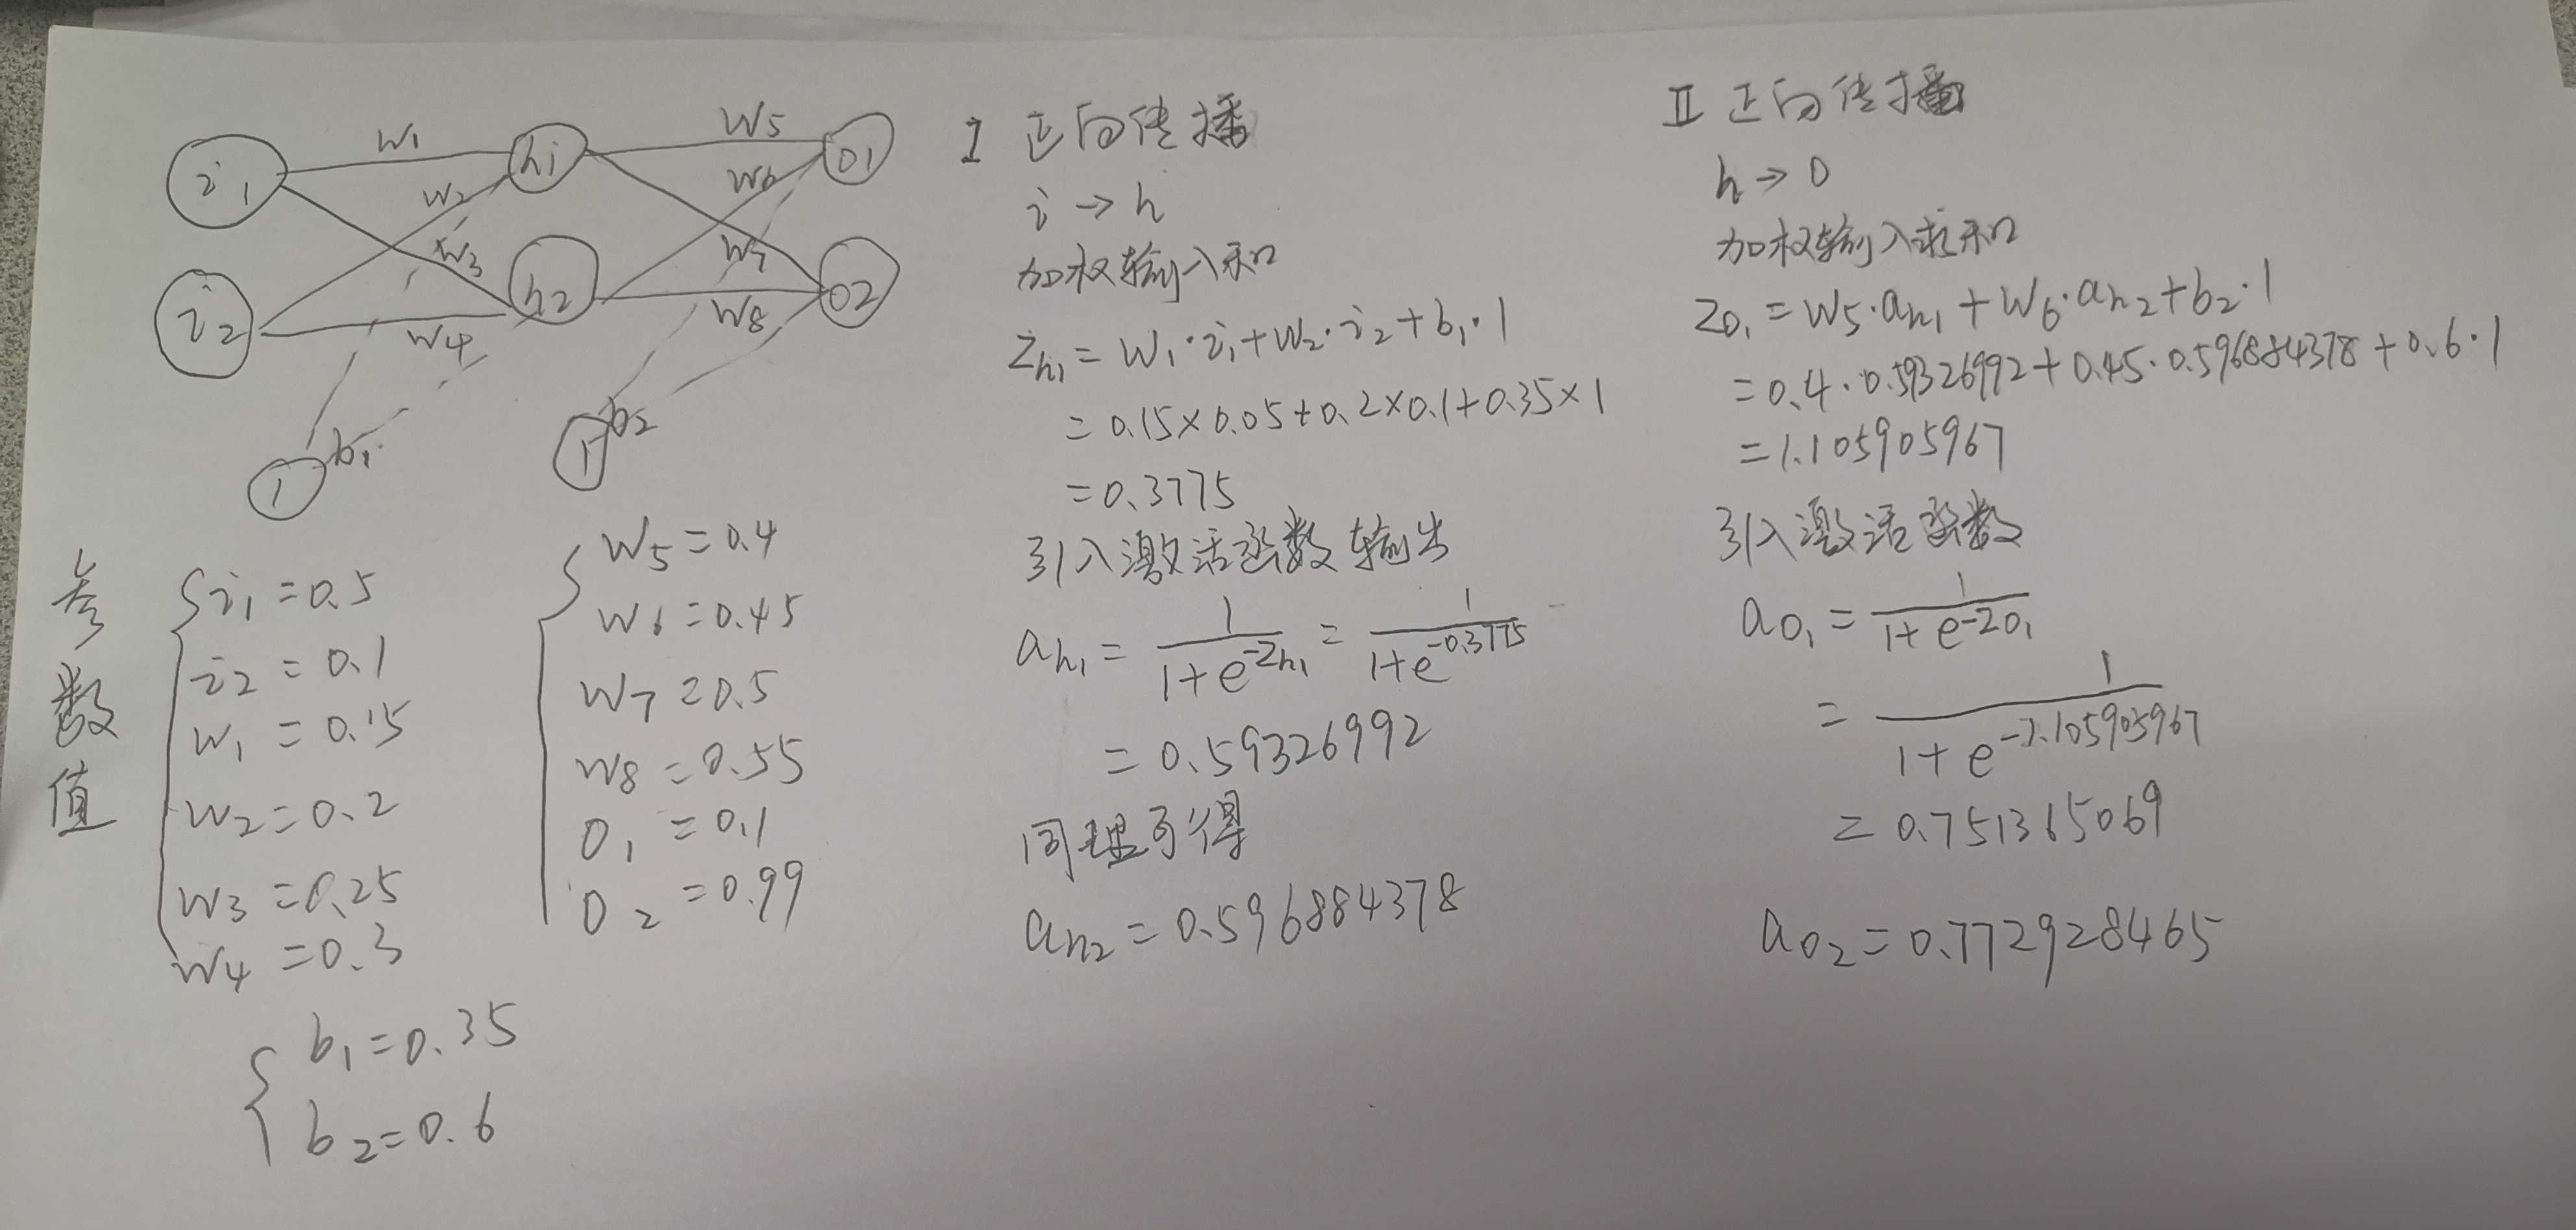 i1
i2
h1
h2
o1
o2
w1
w2
w3
w4
w5
w6
w7
w8
1
b1
1
b2
参数值
i1 = 0.5
i2 = 0.1
w1 = 0.15
w2 = 0.2
w3 = 0.25
w4 = 0.3
w5 = 0.4
w6 = 0.45
w7 = 0.5
w8 = 0.55
O1 = 0.1
O2 = 0.99
b1 = 0.35
b2 = 0.6
I 正向传播
i → h
加权输入和
Zh1 = w1·i1 + w2·i2 + b1·1
= 0.15×0.05+0.2×0.1+0.35×1
= 0.3775
引入激活函数输出
ah1 = 1/(1+e^-Zh1) = 1/(1+e^-0.3775)
= 0.59326992
同理可得
ah2 = 0.596884378
II 正向传播
h → O
加权输入求和
ZO1 = w5·ah1 + w6·ah2 + b2·1
= 0.4·0.59326992 + 0.45·0.596884378 + 0.6·1
= 1.105905967
引入激活函数
aO1 = 1/(1+e^-ZO1)
= 1/(1+e^-1.105905967)
= 0.751365069
aO2 = 0.772928465